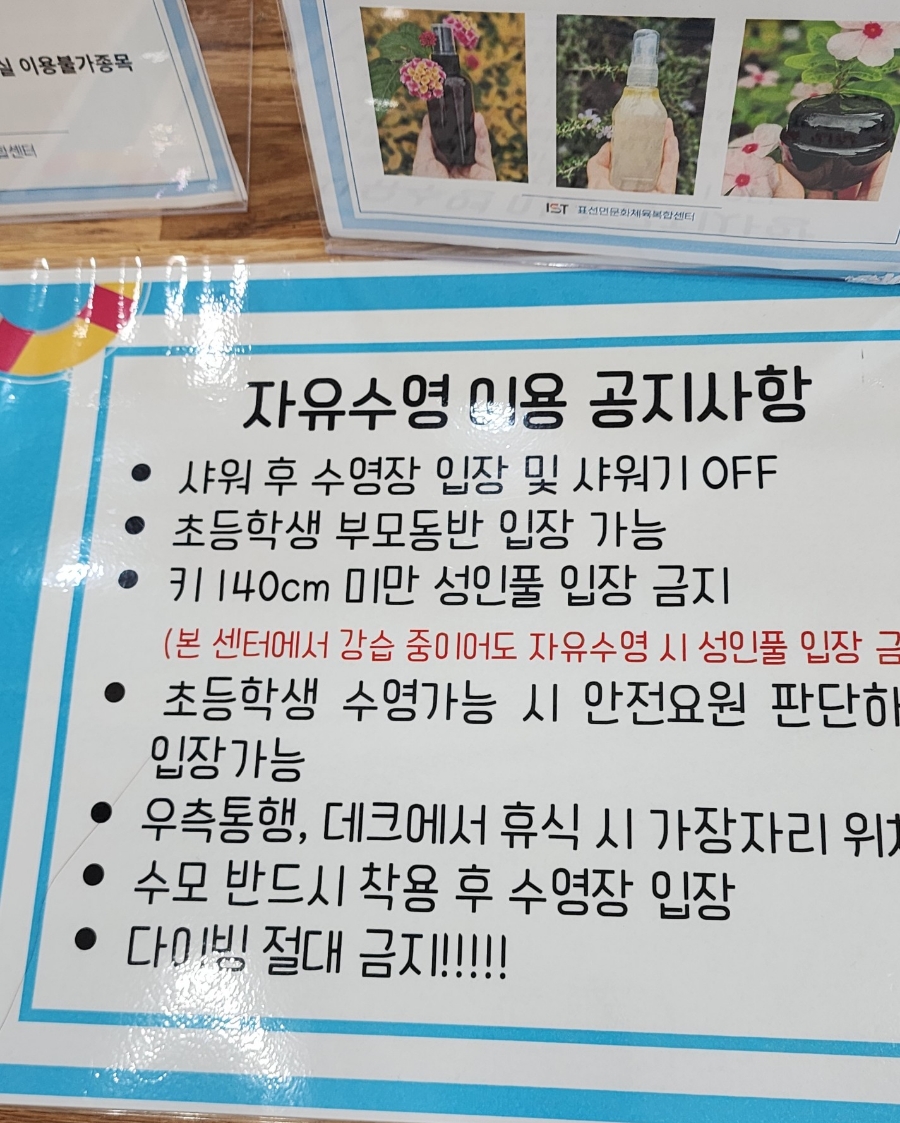 이용불가종목
센터
IST 표선면문화체육복합센터
자유수영 이용 공지사항
● 샤워 후 수영장 입장 및 샤워기 OFF
● 초등학생 부모동반 입장 가능
● 키 140cm 미만 성인풀 입장 금지
(본 센터에서 강습 중이어도 자유수영 시 성인풀 입장 금
● 초등학생 수영가능 시 안전요원 판단하
입장가능
● 우측통행, 데크에서 휴식 시 가장자리 위치
● 수모 반드시 착용 후 수영장 입장
● 다이빙 절대 금지!!!!!